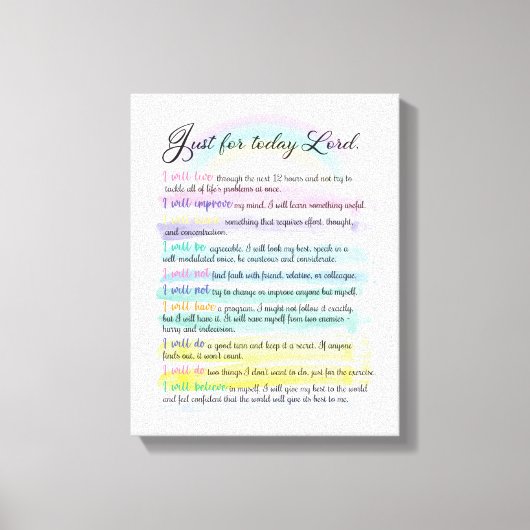 Just for today Lord.
I will live through the next 12 hours and not try to
tackle all of life's problems at once.
I will improve my mind. I will learn something useful.
I will something that requires effort, thought,
and concentration.
I will be agreeable. I will look my best, speak in a
well-modulated voice, be courteous and considerate.
I will not find fault with friend, relative, or colleague.
I will not try to change or improve anyone but myself.
I will have a program. I might not follow it exactly,
but I will have it. I will save myself from two enemies -
hurry and indecision.
I will do a good turn and keep it a secret. If anyone
finds out, it won't count.
I will do two things I don't want to do, just for the exercise.
I will believe in myself. I will give my best to the world
and feel confident that the world will give its best to me.